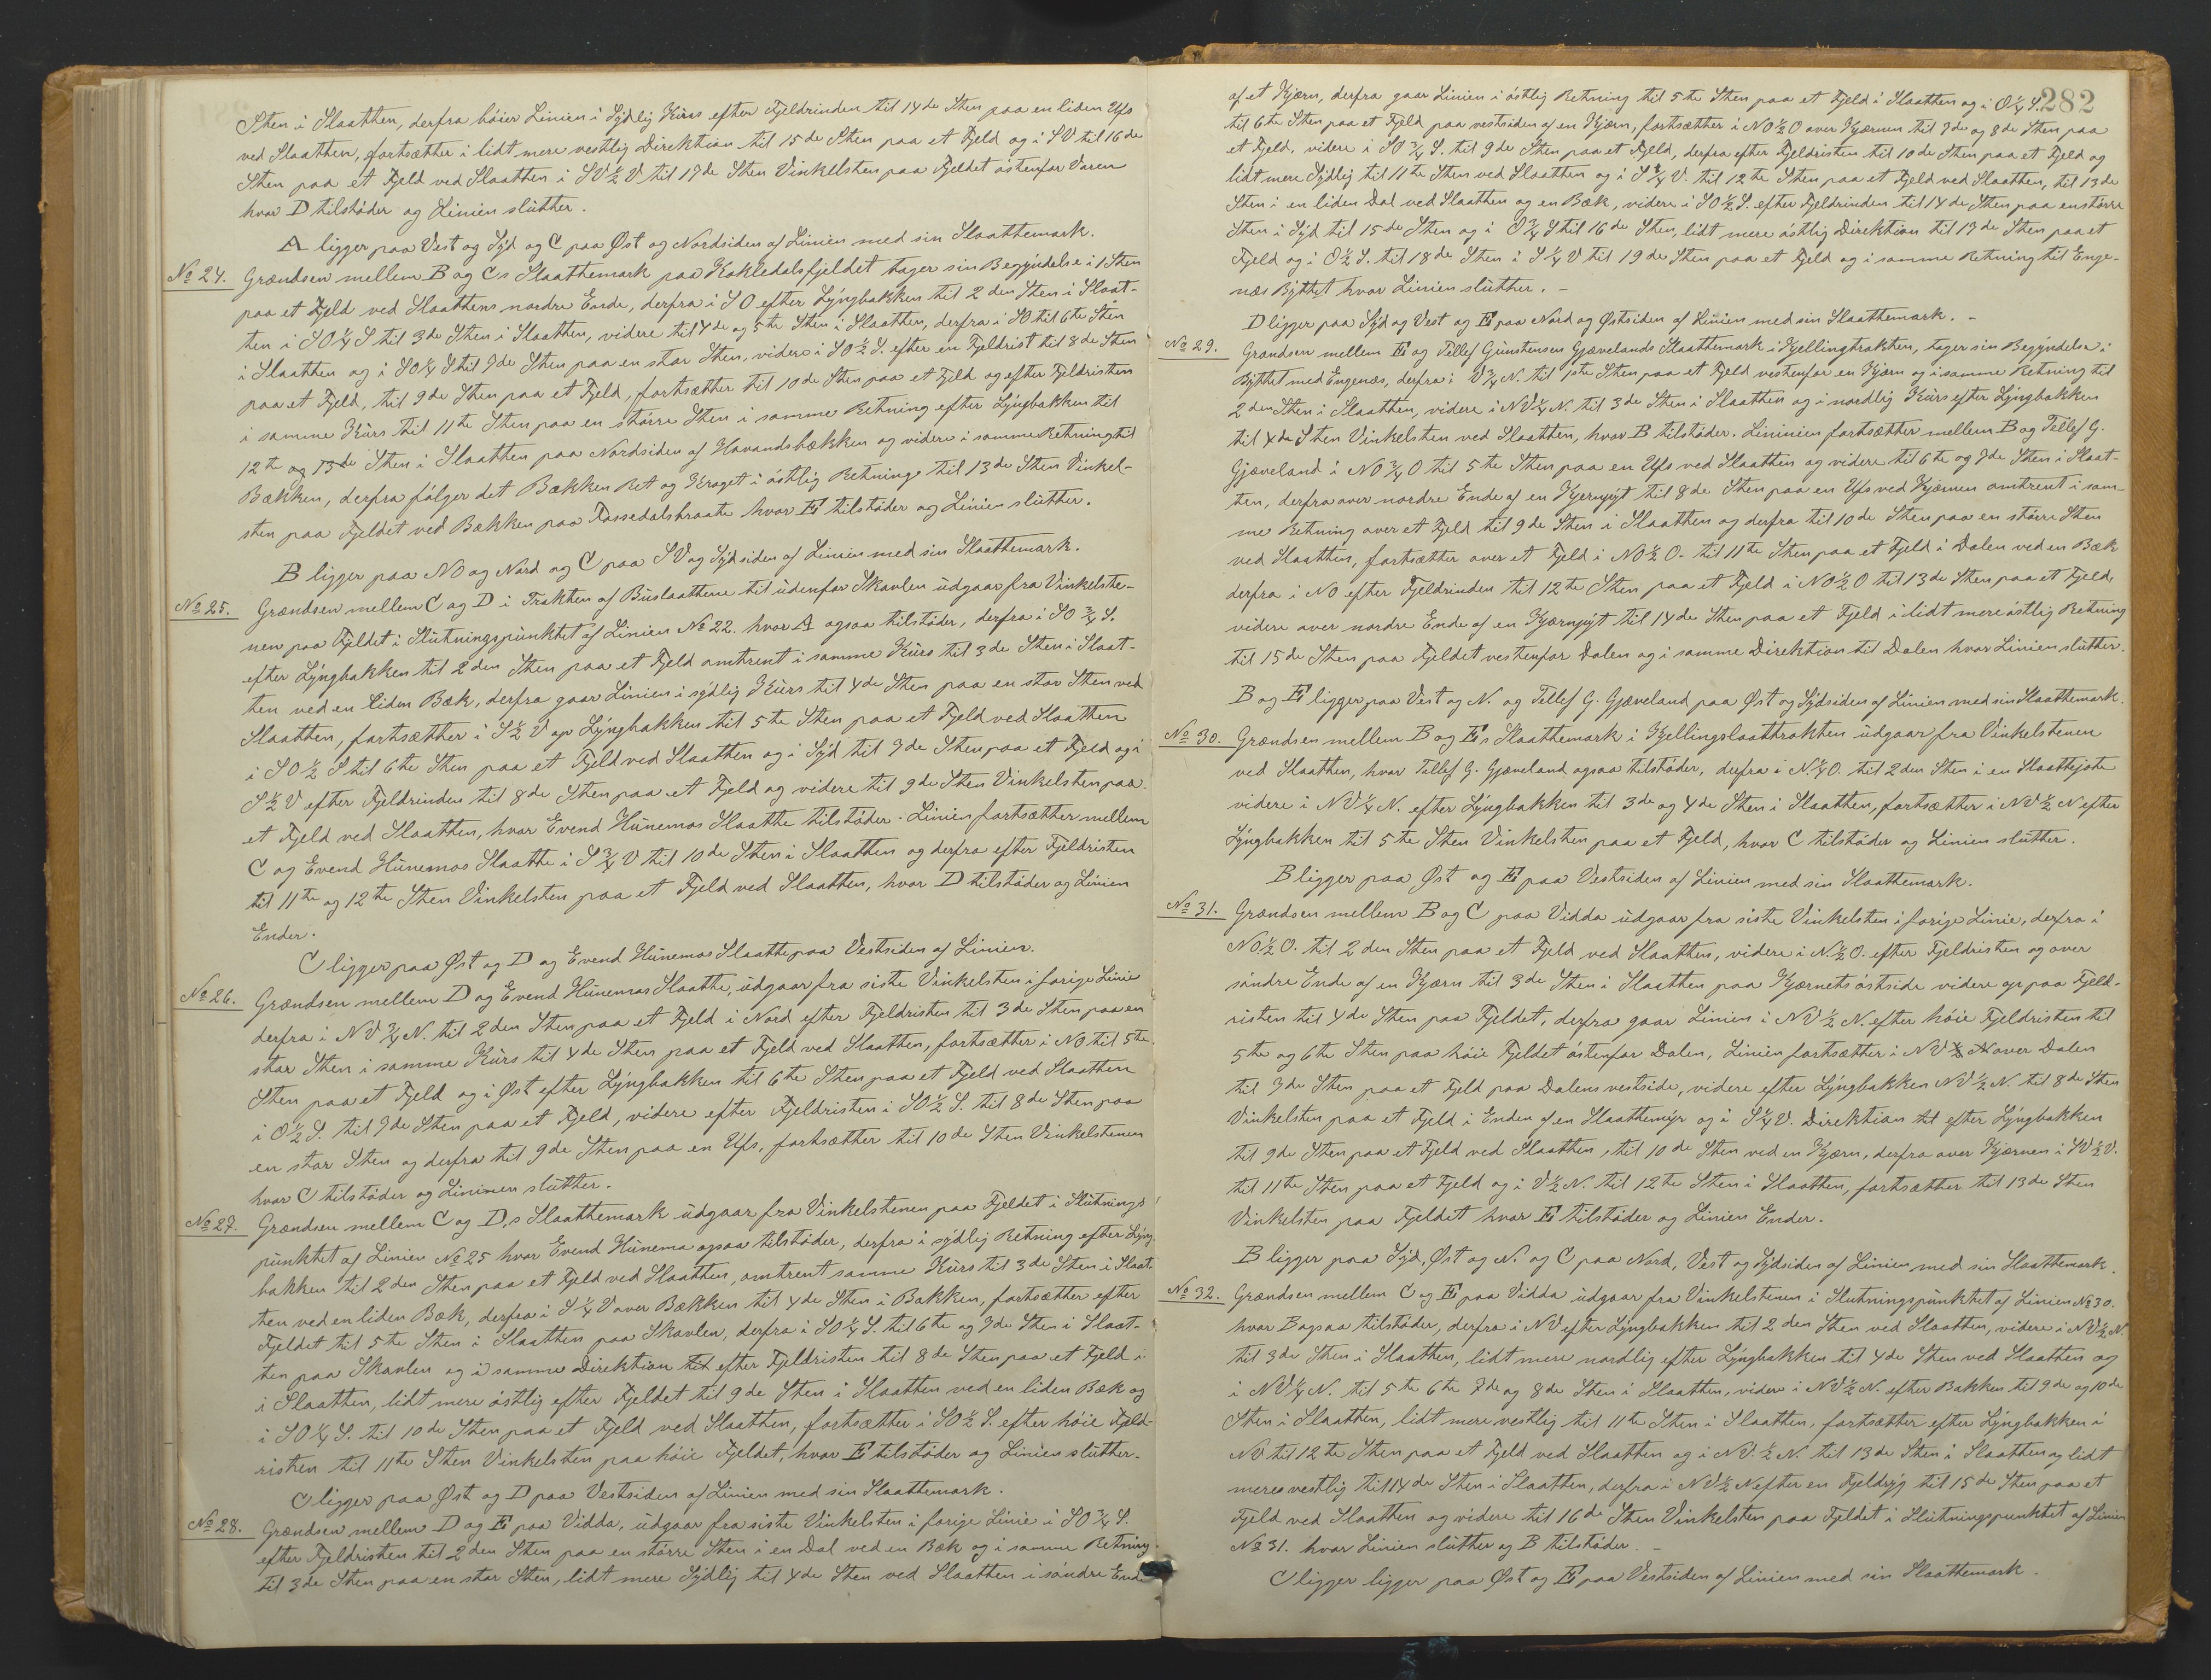 Sten i Slaatten, derfra böier Linien i Sydlig Kurs efter Fjeldrinden til 14de Sten paa en liden Ufs
ved Slaatten, fortsætter i lidt mere vestlig Direktion til 15de Sten paa et Fjeld og i SV til 16de
Sten paa et Fjeld ved Slaatten i SV½V til 17de Sten Vinkelsten paa Fjeldet östenfor Varen
hvor D tilstöder og Linien slutter.
A ligger paa Vest og Syd og C paa Øst og Nordsiden af Linien med sin Slaattemark.
No 24. Grændsen mellem B og Cs Slaattemark paa Kokledalsfjeldet tager sin Begyndelse i 1 Sten
paa et Fjeld ved Slaattens nordre Ende, derfra i SO efter Lyngbakken til 2den Sten i Slaat-
ten i SO¼S til 3de Sten i Slaatten, videre til 4de og 5te Sten i Slaatten, derfra i SO til 6te Sten
i Slaatten og i SO¼S til 7de Sten paa en stor Sten, videre i SO½S. efter en Fjeldrist til 8de Sten
paa et Fjeld, til 9de Sten paa et Fjeld, fortsætter til 10de Sten paa et Fjeld og efter Fjeldristen
i samme Kurs til 11te Sten paa en större Sten i samme Retning efter Lyngbakken til
12te og 13de Sten i Slaatten paa Nordsiden af Havandsbækken og videre i samme Retning til
Bækken, derfra fölger det Bækken Ret og Kroget i östlig Retning til 13de Sten Vinkel-
sten paa Fjeldet ved Bækken paa Fossedalsbraate hvor E tilstöder og Linien slutter.
B ligger paa NO og Nord og C paa SV og Sydsiden af Linien med sin Slaattemark.
No 25. Grændsen mellem C og D i Trakten af Buslaattene til udenfor Skavlen udgaar fra Vinkelste-
nen paa Fjeldet i Slutningspunktet af Linien No 22. hvor A ogsaa tilstöder, derfra i SO¾S.
efter Lyngbakken til 2den Sten paa et Fjeld omtrent i samme Kurs til 3de Sten i Slaat-
ten ved en liden Bæk, derfra gaar Linien i sydlig Kurs til 4de Sten paa en stor Sten ved
Slaatten, fortsætter i S½V op Lyngbakken til 5te Sten paa et Fjeld ved Slaatten
i SO½S til 6te Sten paa et Fjeld ved Slaatten og i Syd til 7de Sten paa et Fjeld og i
S½V efter Fjeldrinden til 8de Sten paa et Fjeld og videre til 9de Sten Vinkelsten paa
et Fjeld ved Slaatten, hvor Evend Hunemos Slaatte tilstöder. Linien fortsætter mellem
C og Evend Hunemos Slaatte i S¾V til 10de Sten i Slaatten og derfra efter Fjeldristen
til 11te og 12te Sten Vinkelsten paa et Fjeld ved Slaatten, hvor D tilstöder og Linien
Ender.
C ligger paa Øst og D og Evend Hunemos Slaatte paa Vestsiden af Linien.
No 26. Grændsen mellem D og Evend Hunemos Slaatte, udgaar fra siste Vinkelsten i forige Linie
derfra i NV¾N. til 2den Sten paa et Fjeld i Nord efter Fjeldristen til 3de Sten paa en
stor Sten i samme Kurs til 4de Sten paa et Fjeld ved Slaatten, fortsætter i NO til 5te
Sten paa et Fjeld og i Øst efter Lyngbakken til 6te Sten paa et Fjeld ved Slaatten
i O½S. til 7de Sten paa et Fjeld, videre efter Fjeldristen i SO½S. til 8de Sten paa
en stor Sten og derfra til 9de Sten paa en Ufs, fortsætter til 10de Sten Vinkelstenen
hvor C tilstöder og Lininen slutter.
No 27. Grændsen mellem C og D,s Slaattemark udgaar fra Vinkelstenen paa Fjeldet i Slutnings
punktet af Linien No 25 hvor Evend Hunemo ogsaa tilstöder, derfra i sydlig Retning efter Lyng-
bakken til 2den Sten paa et Fjeld ved Slaatten, omtrent samme Kurs til 3de Sten i Slaat-
ten ved en liden Bæk, derfra i S¼V over Bækken til 4de Sten i Bakken, fortsætter efter
Fjeldet til 5te Sten i Slaatten paa Skavlen, derfra i SO¼S. til 6te og 7de Sten i Slaat-
ten paa Skavlen og i samme Direktion til efter Fjeldristen til 8de Sten paa et Fjeld i
i Slaatten, lidt mere östlig efter Fjeldet til 9de Sten i Slaatten ved en liden Bæk og
i SO¼S. til 10de Sten paa et Fjeld ved Slaatten, fortsætter i SO½S. efter höie Fjeld-
risten til 11te Sten Vinkelsten paa höie Fjeldet, hvor E tilstöder og Linien slutter.
C ligger paa Øst og D paa Vestsiden af Linien med sin Slaattemark.
No 28. Grændsen mellem D og E paa Vidda, udgaar fra siste Vinkelsten i forige Linie i SO¾S.
efter Fjeldristen til 2den Sten paa en större Sten i en Dal ved en Bæk og i samme Retning
til 3de Sten paa en stor Sten, lidt mere Sydlig til 4de Sten ved Slaatten i söndre Ende
282
af et Kjærn, derfra gaar Linien i östlig Retning til 5te Sten paa et Fjeld i Slaatten og i O¼S.
til 6te Sten paa et Fjeld paa vestsiden af en Kjærn, fortsætter i NO½O over Kjærnen til 7de og 8de Sten paa
et Fjeld, videre i SO¾S. til 9de Sten paa et Fjeld, derfra efter Fjeldristen til 10de Sten paa et Fjeld og
lidt mere Sydlig til 11te Sten ved Slaatten og i S¾V. til 12te Sten paa et Fjeld ved Slaatten, til 13de
Sten i en liden Dal ved Slaatten og en Bæk, videre i SO½S. efter Fjeldrinden til 14de Sten paa en större
Sten i Syd til 15de Sten og i O¾S til 16de Sten, lidt mere östlig Direktion til 17de Sten paa et
Fjeld og i O½S. til 18de Sten i S¼V til 19de Sten paa et Fjeld og i samme Retning til Enge-
næs Byttet hvor Linien slutter. -
D ligger paa Syd og Vest og E paa Nord og Østsiden af Linien med sin Slaattemark. -
No 29. Grændsen mellem E og Tellef Gunstensen Gjævelands Slaattemark i Kjellingtrakten, tager sin Begyndelse i
Byttet med Engenæs, derfra i V¾N. til 1ste Sten paa et Fjeld vestenfor en Kjærn og i samme Retning til
2den Sten i Slaatten, videre i NV¼N. til 3de Sten i Slaatten og i nordlig Kurs efter Lyngbakken
til 4de Sten Vinkelsten ved Slaatten, hvor B tilstöder. Lininien fortsætter mellem B og Tellef G.
Gjæveland i NO¾O til 5te Sten paa en Ufs ved Slaatten og videre til 6te og 7de Sten i Slaat-
ten, derfra over nordre Ende af en Kjernpyt til 8de Sten paa en Ufs ved Kjærnen omtrent i sam-
me Retning over et Fjeld til 9de Sten i Slaatten og derfra til 10de Sten paa en större Sten
ved Slaatten, fortsætter over et Fjeld i NO½O. til 11te Sten paa et Fjeld i Dalen ved en Bæk
derfra i NO efter Fjeldrinden til 12te Sten paa et Fjeld i NO½O til 13de Sten paa et Fjeld,
videre over nordre Ende af en Kjærnpyt til 14de Sten paa et Fjeld i lidt mere östlig Retning
til 15de Sten paa Fjeldet vestenfor Dalen og i samme Direktion til Dalen hvor Linien slutter.
B og E ligger paa Vest og N. og Tellef G. Gjæveland paa Øst og Sydsiden af Linien med sin Slaattemark.
No 30. Grændsen mellem B og E,s Slaattemark i Kjellingslaattrakten udgaar fra Vinkelstenen
ved Slaatten, hvor Tellef G. Gjæveland ogsaa tilstöder, derfra i N¼O. til 2den Sten i en Slaattejote
videre i NV¼N. efter Lyngbakken til 3de og 4de Sten i Slaatten, fortsætter i NV½N efter
Lyngbakken til 5te Sten Vinkelsten paa et Fjeld, hvor C tilstöder og Linien slutter.
B ligger paa Øst og E paa Vestsiden af Linien med sin Slaattemark.
No 31. Grændsen mellem B og C paa Vidda udgaar fra siste Vinkelsten i forige Linie, derfra i
NO½O. til 2den Sten paa et Fjeld ved Slaatten, videre i N½O. efter Fjeldristen og over
söndre Ende af en Kjærn til 3de Sten i Slaatten paa Kjærnets östside videre op paa Fjeld-
risten til 4de Sten paa Fjeldet, derfra gaar Linien i NV½N. efter höie Fjeldristen til
5te og 6te Sten paa höie Fjeldet östenfor Dalen, Linien fortsætter i NV over Dalen
til 7de Sten paa et Fjeld paa Dalens vestside, videre efter Lyngbakken NV½N. til 8de Sten
Vinkelsten paa et Fjeld i Enden af en Slaattemyr og i S¼V. Direktion til efter Lyngbakken
til 9de Sten paa et Fjeld ved Slaatten, til 10de Sten ved en Kjærn, derfra over Kjærnen i SV½V.
til 11te Sten paa et Fjeld og i V½N. til 12te Sten i Slaatten, fortsætter til 13de Sten
Vinkelsten paa Fjeldet hvor E tilstöder og Linien Ender.
B ligger paa Syd, Øst og N. og C paa Nord, Vest og Sydsiden af Linien med sin Slaattemark.
No 32. Grændsen mellem C og E paa Vidda udgaar fra Vinkelstenen i Slutningspunktet af Linien No 30.
hvor B ogsaa tilstöder, derfra i NV efter Lyngbakken til 2den Sten ved Slaatten, videre i NV½N.
til 3de Sten i Slaatten, lidt mere nordlig efter Lyngbakken til 4de Sten ved Slaatten og
i NV¼N. til 5te 6te 7de og 8de Sten i Slaatten, videre i NV½N. efter Bakken til 9de og 10de
Sten i Slaatten, lidt mere vestlig til 11te Sten i Slaatten, fortsætter efter Lyngbakken i
NV til 12te Sten paa et Fjeld ved Slaatten og i NV.½N. til 13de Sten i Slaatten og lidt
mere vestlig til 14de Sten i Slaatten, derfra i NV½N efter en Fjeldryg til 15de Sten paa et
Fjeld ved Slaatten og videre til 16de Sten Vinkelsten paa Fjeldet i Slutningspunktet af Linien
No 31. hvor Linien slutter og B tilstöder. -
C ligger ligger paa Øst og E paa Vestsiden af Linien med sin Slaattemark.